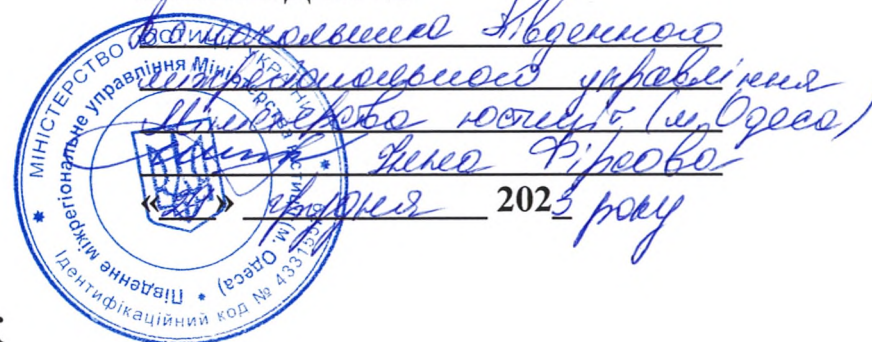 В.о. начальника Південного
міжрегіонального управління
Міністерства юстиції (м. Одеса)
Інна Фірсова
« » грудня 2023 року
МІНІСТЕРСТВО ЮСТИЦІЇ УКРАЇНИ
Південне міжрегіональне управління Міністерства юстиції (м. Одеса)
Ідентифікаційний код №